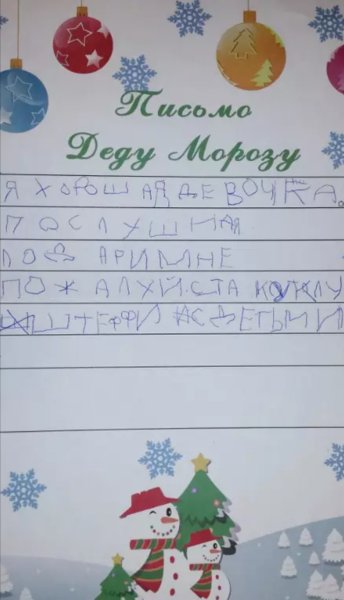 Письмо
Деду Морозу
Я ХОРОШАЯ ДЕВОЧКА.
ПОСЛУШНАЯ
ПОДАРИ МНЕ
ПОЖАЛУЙСТА КУКЛУ
ШТЕФФИ С ДЕТЬМИ